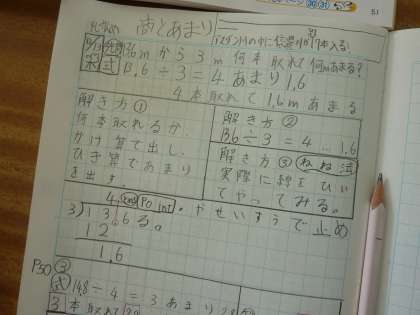 51
商とあまり
13.6mから3m何本取れて何mあまる?
式 13.6÷3=4あまり1.6
4本取れて1.6mあまる
解き方①
何本取れるか
かけ算で出し、
ひき算であまり
を出す
解き方②
13.6÷3=4…1.6
解き方③
実際に線をひい
てやってみる。
4
3)13.6
12
1.6
・やせいすうで止め
る。
P50③
式 14.8÷4=3あまり2.8
3本取れて